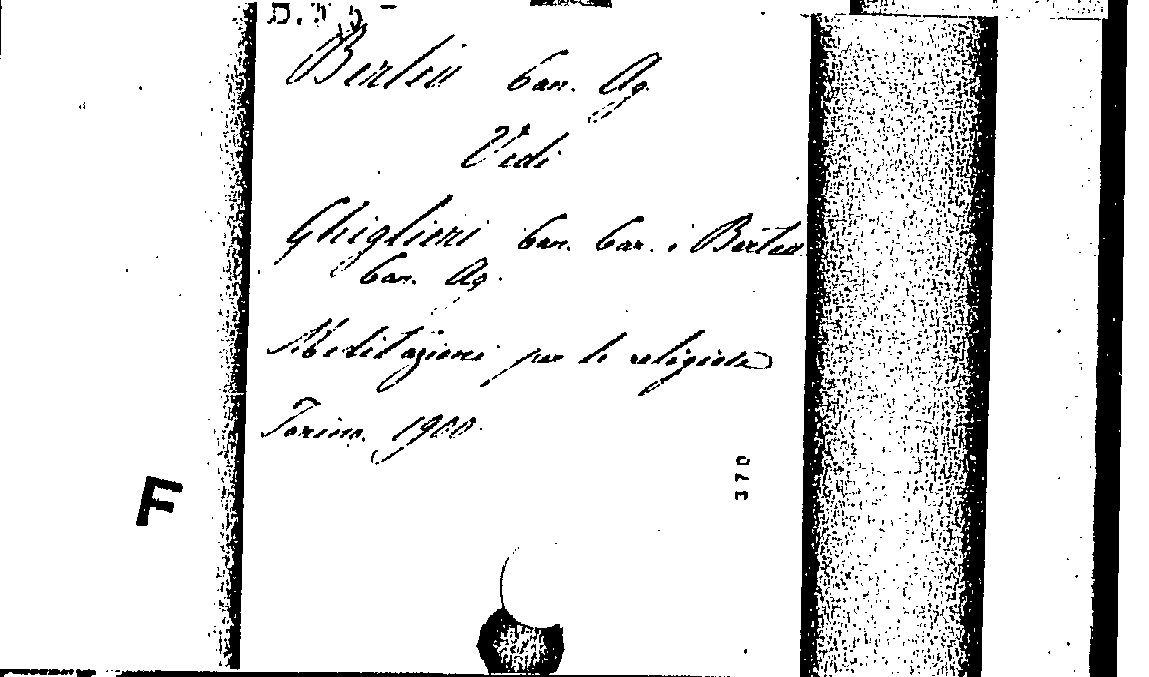 Bertea Can. Ag.
Vedi
Ghiglioni Can. Car. e Bertea
Can. Ag.
Meditazioni per le religiose
Torino. 1900
370
F